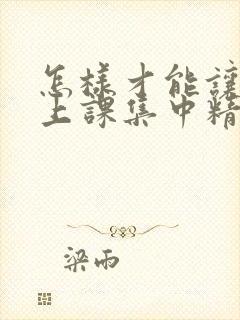 怎樣才能讓
上課集中精
梁雨